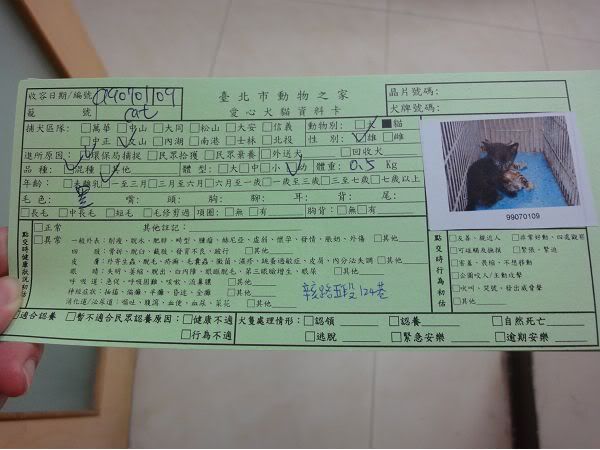 收容日期/編號 990701109
臺北市動物之家
晶片號碼:
籠 號 cat
愛心犬貓資料卡
犬牌號碼:
捕犬區隊: □萬華 □中山 □大同 □松山 □大安 □信義 動物別: □犬 ■貓
□中正 □文山 □內湖 □南港 □士林 □北投 性 別: □雄 □雌
進所原因: 環保局捕捉 □民眾拾獲 □民眾棄養 □外送犬 □回收犬
品 種: 混種 其他 體 型: □大 □中 □小 幼 體重: 0.5 Kg
年齡: 未離乳 □一至三月 □三月至六月 □六月至一歲 □一歲至三歲 □三至七歲 □七歲以上
毛 色: 黑 嘴: 頭: 胸: 腳: 耳: 背: 尾:
□長毛 □中長毛 □短毛 □毛修剪過 項圈: □無 □有 胸背: □無 □有
99070109
點交時健康狀況初估
□正常 其他註記:
□異常 一般外表: 削瘦、脫水、肥胖、畸型、腫瘤、疝氣、懷孕、發情、脹奶、外傷 □其他
四 肢: 骨折、脫臼、截肢、發育不良、跛行 □其他
皮 膚: 外寄生蟲、脫毛、疥癬、毛囊蟲、黴菌、濕疹、跳蚤過敏症、皮屑、內分泌失調 □其他
眼 睛: 失明、萎縮、脫出、白內障、眼瞼脫毛、第三眼瞼增生、眼屎 □其他
呼 吸 道: 急促、呼吸困難、咳嗽、流鼻膿 □其他
神經症狀: 抽搐、偏癱、半癱、昏迷、全癱 □其他
消化道/泌尿道: 嘔吐、腹瀉、血便、血尿、菜花 □其他
辛亥路五段124巷
點交時行為初估
□友善、親近人 □非常好動、四處觀察
□可碰觸及撫摸 □緊張、緊迫
□害羞、畏縮、不想移動
□企圖咬人/主動攻擊
□吠叫、哭號、發出威脅聲
□其他
□適合認養 □暫不適合民眾認養原因: □健康不適 □行為不適
犬隻處理情形: □認領 □認養 □自然死亡
□逃脫 □緊急安樂 □逾期安樂